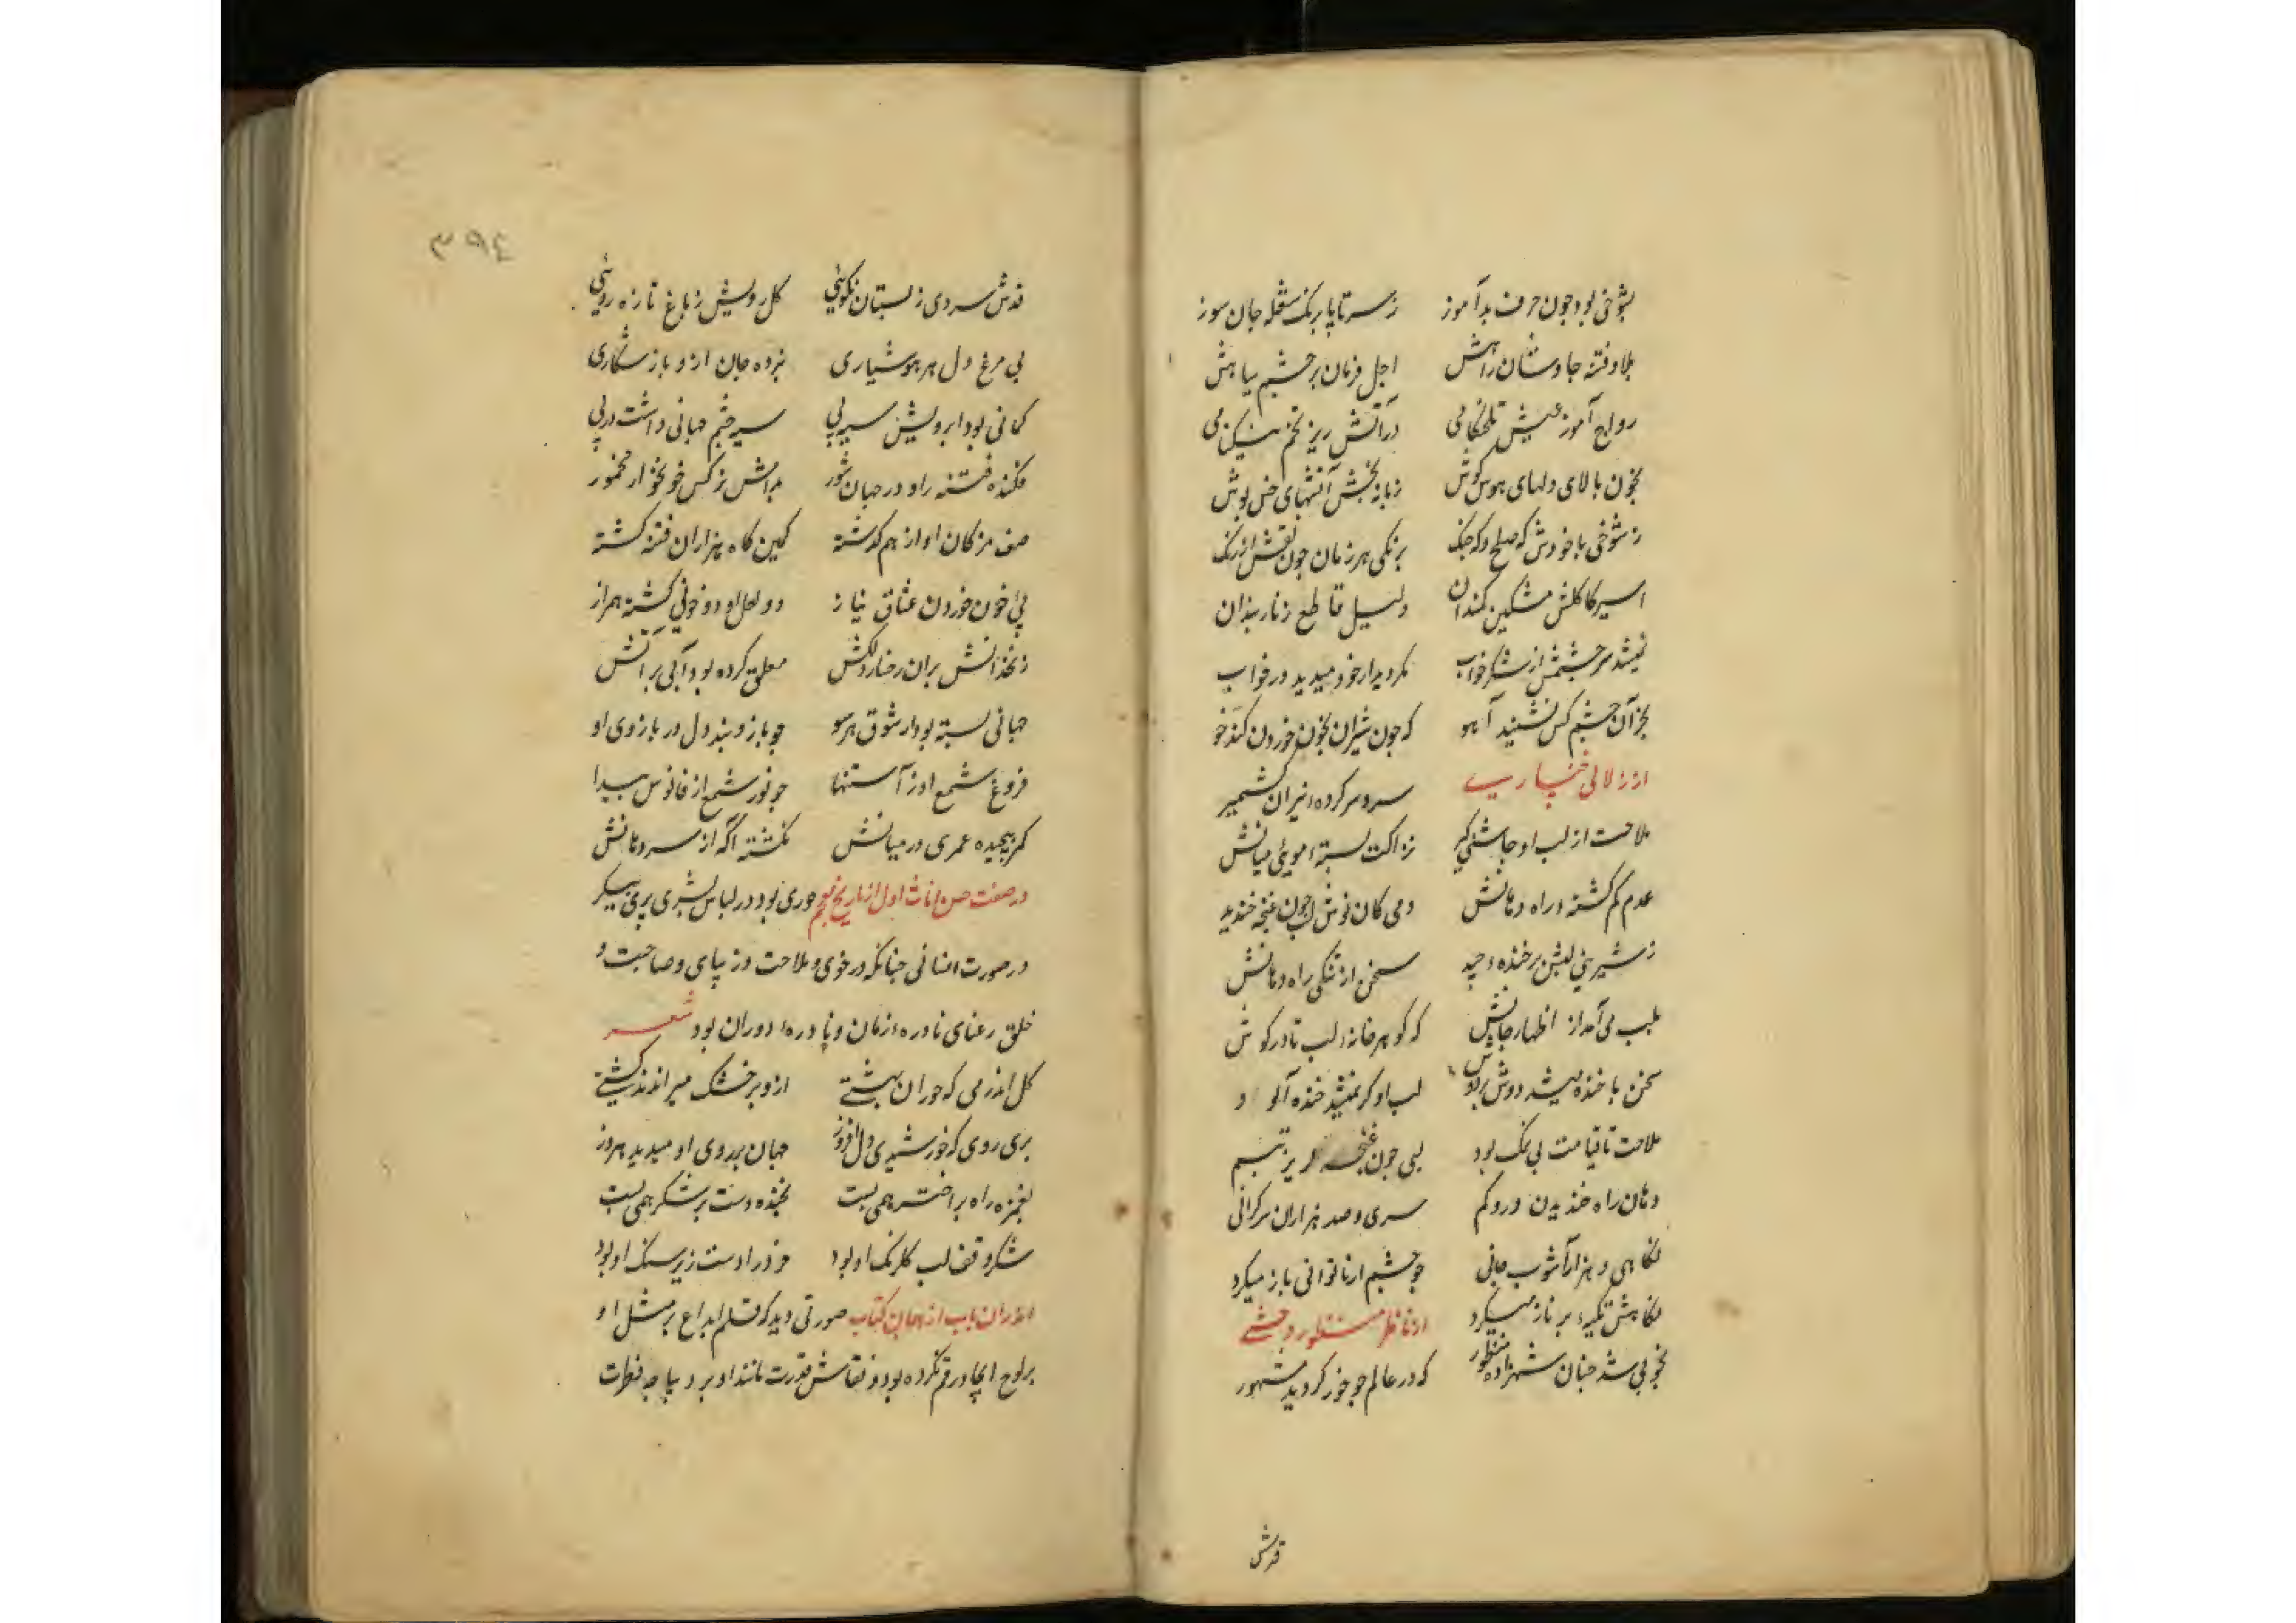 بشوخی بود چون حرف بدآموز ز سر تا پا برنک شعله جان سوز
بلا و فتنه جاوشان راهش اجل فرمان بر چشم سیاهش
رواج آموز عیش تلخکامی در آتش ریز تخم نیکنامی
بخون بالای دلهای هوس کوش زبانه بخش آتشهای خس پوش
ز شوخی با خودش که صلح و که جنک برنکی هر زمان چون نقش ارژنک
اسیر کاکلش مشکین کمندان دلیل قاطع زنار بندان
نمیشد سر چشمش از شکر خواب مکر دیدار خود میدید در خواب
بجز آن چشم کس نشنید آهو که چون شیران بخون خوردن کند خو
از زلالی خنساریست سر و سر کرده‌ء نیران کشمیر
ملاحت از لب او چاشنی کیر نزاکت بسته‌ء موئی میانش
عدم کم کشته‌ء راه دهانش دمی کان نوش لب چون غنچه خندید
ز شیرینی لبش بر خنده‌ء چید سخن از تنکی راه دهانش
بلب می آمد از اظهار جانش که کوهر خانه‌ء لب تا در کوش
سخن با خنده میشد دوش بر دوش لب او کر نمیشد خنده آلود
ملاحت تا قیامت بی نمک بود لبی چون غنچه لبریز تبسم
دهان راه خندیدن درو کم سری و صد هزاران سرکرانی
نکاهی و هزار آشوب جانی چو چشم از ناتوانی باز میکرد
نکاهش تکیه‌ء بر ناز میکرد از ناظر منظور وحشی
بخوبی شد چنان شهزاده منظور که در عالم چو خور کردید مشهور
قدش
۳۹۴
قدش سروی ز بستان نکوئی کل رویش ز باغ تازه روئی
پی مرغ دل هر هوشیاری نبرده جان ازو باز شکاری
کمانی بود ابرویش سیه پی سیه چشم جهانی داشت در پی
فکنده فتنه را و در جهان شور مدامش نرکس خونخوار مخمور
صف مژکان او از هم کذشته کمین کاه هزاران فتنه کشته
پئ خون خوردن عشاق نیاز دو لعل او دو خونی کشته همراز
زنخدانش بران رخسار دلکش معلق کرده بود آبی بر آتش
جهانی بسته بود از شوق هر سو چو بازوبند دل در بازوی او
فروغ شمع او ز آستنها چو نور شمع از فانوس پیدا
کمر پیچیده عمری در میانش نکشته آکه از سر دهانش
در صفت حسن اناث اول از تاریخ معجم حوری بود در لباس بشری پری پیکر
در صورت انسانی چنانکه در خوی و ملاحت و زیبای و صباحت و
خلق رعنای نادره‌ء زمان و نادره‌ء دوران بود شعر
کل اندامی که حوران بهشتی ازو بر خشک میراندند کشتی
پری روی که خورشیدی دل افروز جهان بر روی او میدید هر روز
بغمزه راه بر اختر همی بست بخنده دست بر شکر همی بست
شکر وقف لب کلرنک او بود خرد را دست زیر سنک او بود
اندران باب از همان کتاب صورتی دید که قلم ابداع بر مثل او
بر لوح ایجاد رقم نکرده بود و نقاش قدرت مانند او بر دیباچه فطرت